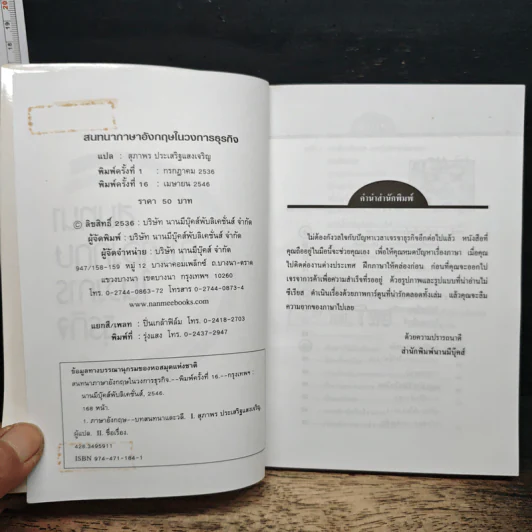 สนทนาภาษาอังกฤษในวงการธุรกิจ
แปล : สุภาพร ประเสริฐแสงเจริญ
พิมพ์ครั้งที่ 1 : กรกฎาคม 2536
พิมพ์ครั้งที่ 16 : เมษายน 2546
ราคา 50 บาท
© ลิขสิทธิ์ 2536 : บริษัท นานมีบุ๊คส์พับลิเคชั่นส์ จำกัด
ผู้จัดพิมพ์ : บริษัท นานมีบุ๊คส์พับลิเคชั่นส์ จำกัด
ผู้จัดจำหน่าย : บริษัท นานมีบุ๊คส์พับลิเคชั่นส์ จำกัด
947/158-159 หมู่ 12 บางนาคอมเพล็กซ์ ถ.บางนา-ตราด
แขวงบางนา เขตบางนา กรุงเทพฯ 10260
โทร. 0-2744-0863-72 โทรสาร 0-2744-0873-4
www.nanmeebooks.com
แยกสี/เพลท : ปิ่นเกล้าฟิล์ม โทร. 0-2418-2703
พิมพ์ที่ : รุ่งแสง โทร. 0-2437-2947
ข้อมูลทางบรรณานุกรมของหอสมุดแห่งชาติ
สนทนาภาษาอังกฤษในวงการธุรกิจ.--พิมพ์ครั้งที่ 16.--กรุงเทพฯ :
นานมีบุ๊คส์พับลิเคชั่นส์, 2546.
168 หน้า
1. ภาษาอังกฤษ--บทสนทนาและวลี. I. สุภาพร ประเสริฐแสงเจริญ
ผู้แปล. II. ชื่อเรื่อง.
428.3495911
ISBN 974-471-184-1
คำนำสำนักพิมพ์
ไม่ต้องกังวลใจกับปัญหาเวลาเจรจาธุรกิจอีกต่อไปแล้ว หนังสือที่
คุณถืออยู่ในมือนี้จะช่วยคุณเอง เพื่อให้คุณหมดปัญหาเรื่องภาษา เมื่อคุณ
ไปติดต่องานต่างประเทศ ฝึกภาษาให้คล่องก่อน ก่อนที่คุณจะออกไป
เจรจาการค้าเพื่อความสำเร็จที่รออยู่ ด้วยรูปภาพและรูปแบบที่น่าอ่านไม่
ซีเรียส ดำเนินเรื่องด้วยภาพการ์ตูนที่น่ารักตลอดทั้งเล่ม แล้วคุณจะลืม
ความยากของภาษาไปเลย
ด้วยความปรารถนาดี
สำนักพิมพ์นานมีบุ๊คส์